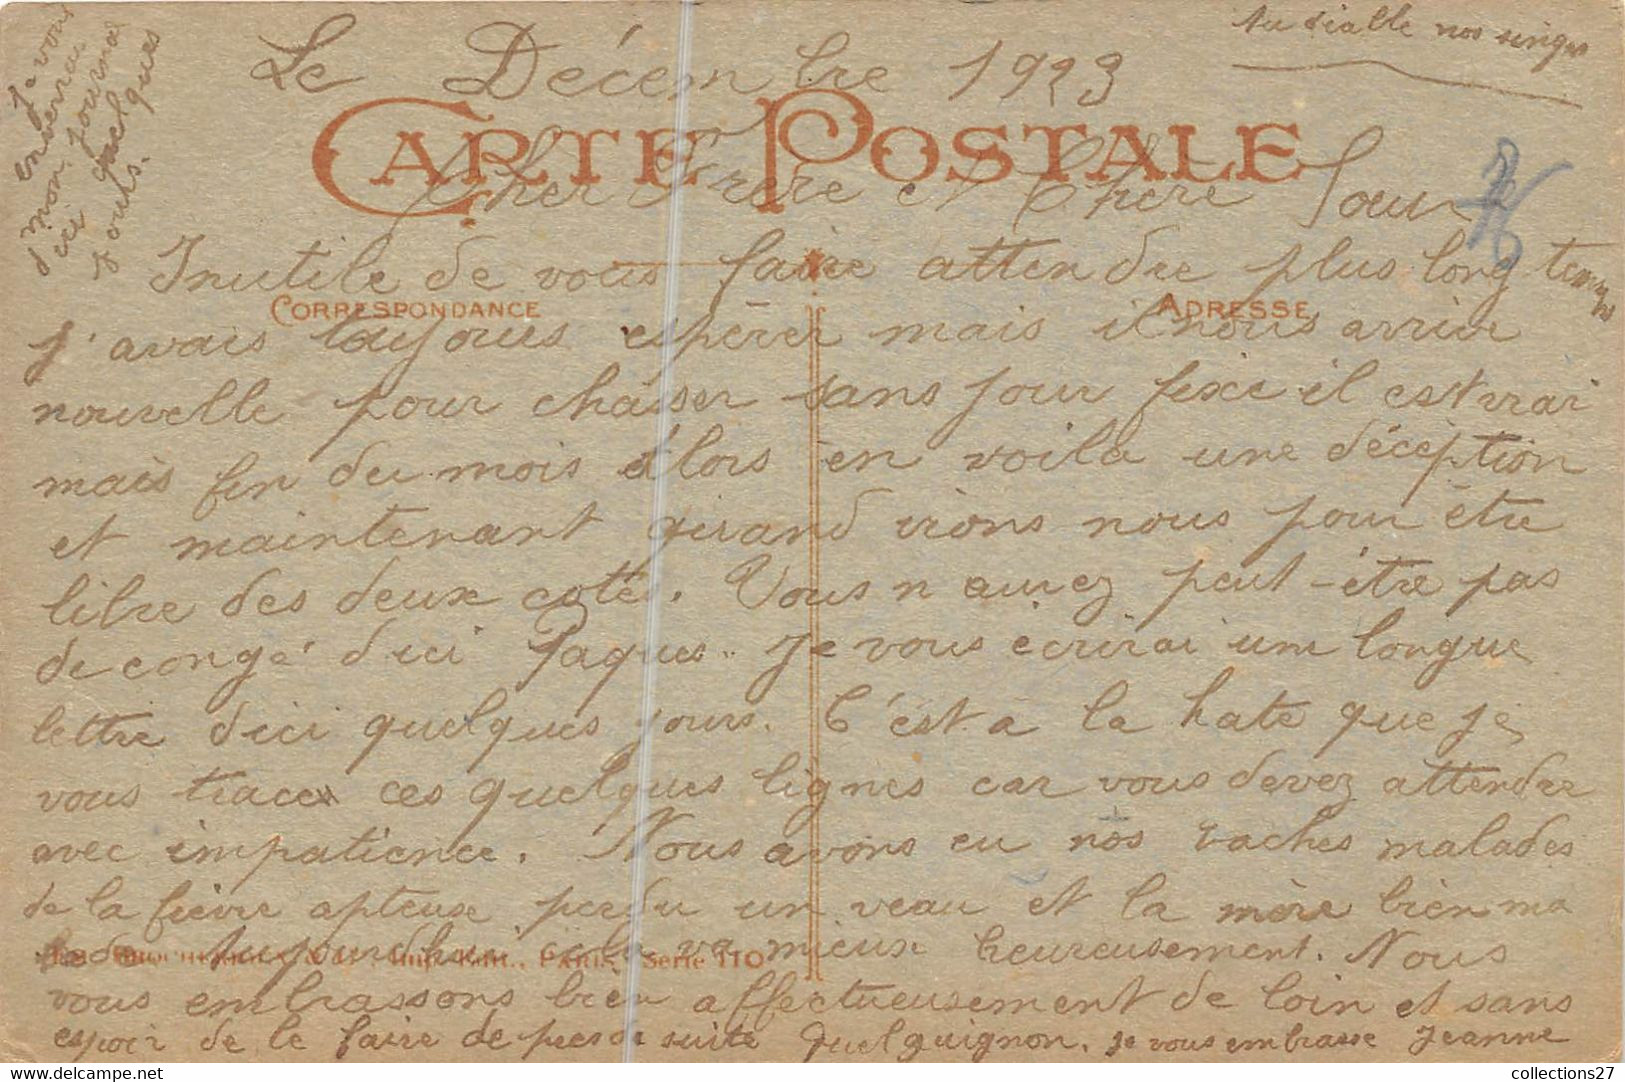 Au diable nos singes
Je vous
enverrai
mon journal
d'ici quelques
jours.
Le Décembre 1923
CARTE POSTALE
Cher Frère et Chère Sœur
Inutile de vous faire attendre plus long temps
CORRESPONDANCE
ADRESSE
J'avais toujours espérer mais il nous arrive
nouvelle pour chasser sans jour fixe il est vrai
mais fin du mois alors en voila une décéption
et maintenant quand irons nous pour être
libre des deux cotés. Vous n aurez peut-être pas
de congé dici Paques. Je vous écrirai une longue
lettre dici quelques jours. C'est à la hate que je
vous trace ces quelques lignes car vous devez attendre
avec impatience. Nous avons eu nos vaches malades
de la fièvre apteuse perdu un veau et la mère bien ma
lade Aujourdhui cela va mieux heureusement. Nous
Imp. Edit., PARIS, Série 110
vous embrassons bien affectueusement de loin et sans
espoir de le faire de près de suite Quel guignon. Je vous embrasse Jeanne
collections27